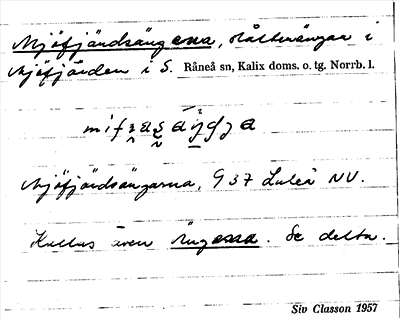 Mjöfjärdsängarna, slåtterängar i
Mjöfjärden i S. Råneå sn, Kalix doms. o. tg. Norrb. l.
Mjöfjärdsängarna, 937 Luleå NV.
Kallas även Ängarna. Se detta.
Siv Classon 1957